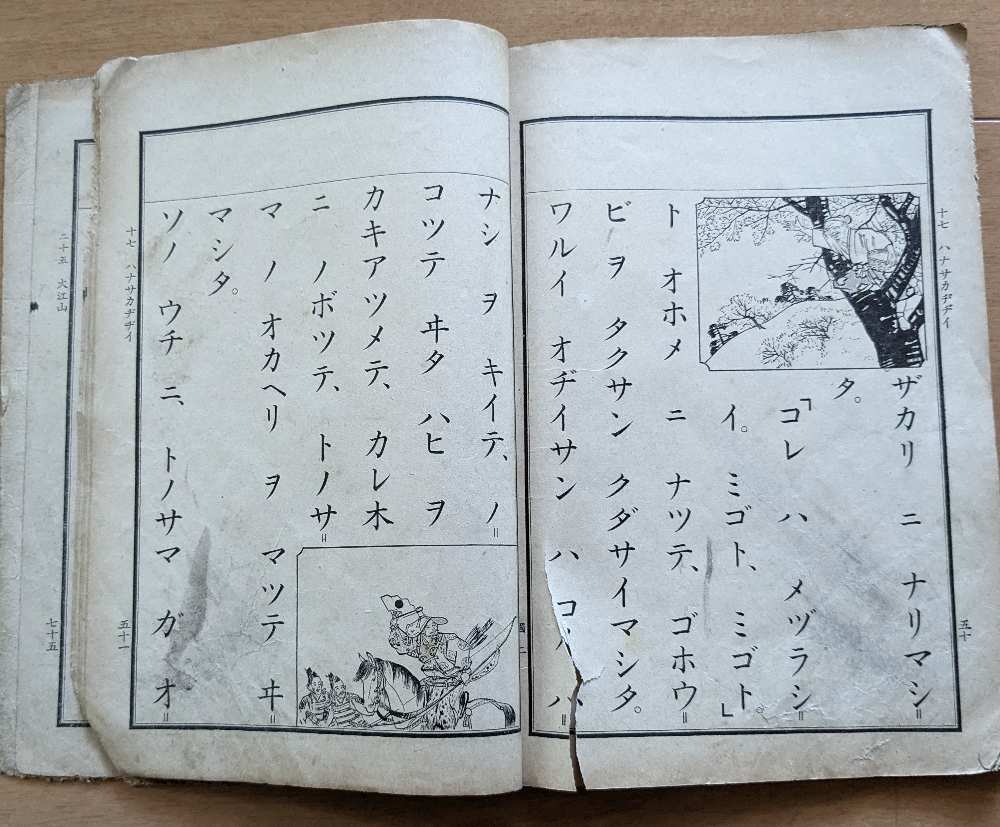 十七 ハナサカヂヂイ
五十
ザカリ ニ ナリマシ＝
タ。
「コレ ハ メヅラシ＝
イ。ミゴト、ミゴト。」
ト オホメ ニ ナツテ、ゴホウ＝
ビヲ タクサン クダサイマシタ。
ワルイ オヂイサン ハ コノ ハ＝
ナシ ヲ キイテ、ノ＝
コツテ ヰタ ハヒ ヲ
カキアツメテ、カレ木
ニ ノボツテ、トノサ＝
マ ノ オカヘリ ヲ マツテ ヰ＝
マシタ。
ソノ ウチ ニ、トノサマ ガ オ＝
十七 ハナサカヂヂイ
五十一
二十五 大江山
七十五